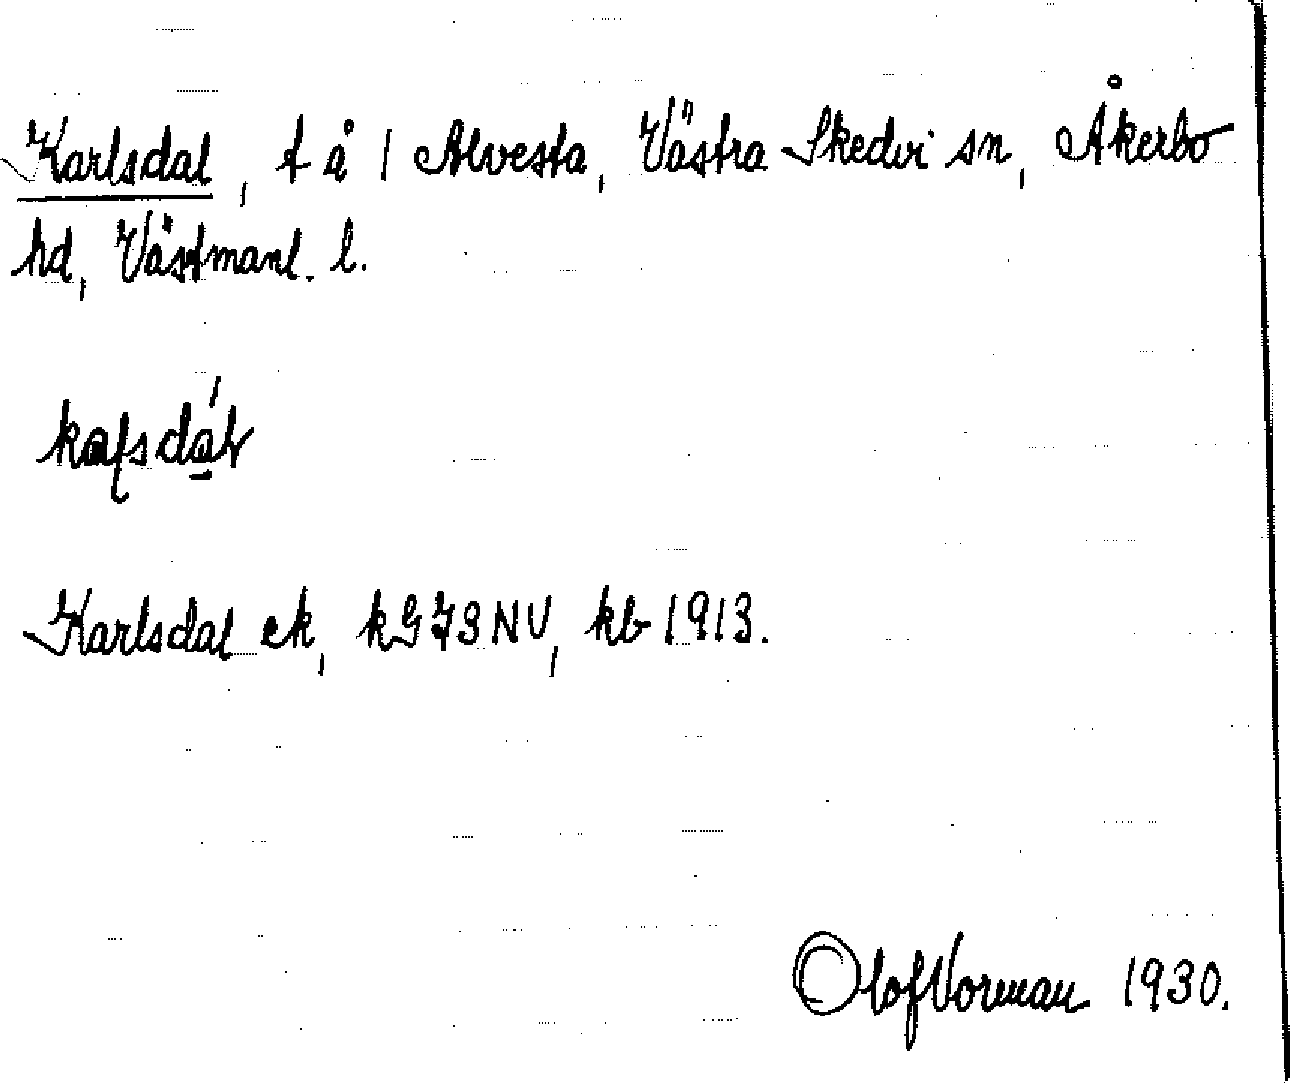 Karlsdal, t å 1 Alvesta, Västra Skedvi sn, Åkerbo
hd, Västmanl. l.
Karlsdal ek, kG73NV, kb 1913.
Olof Vorman 1930.